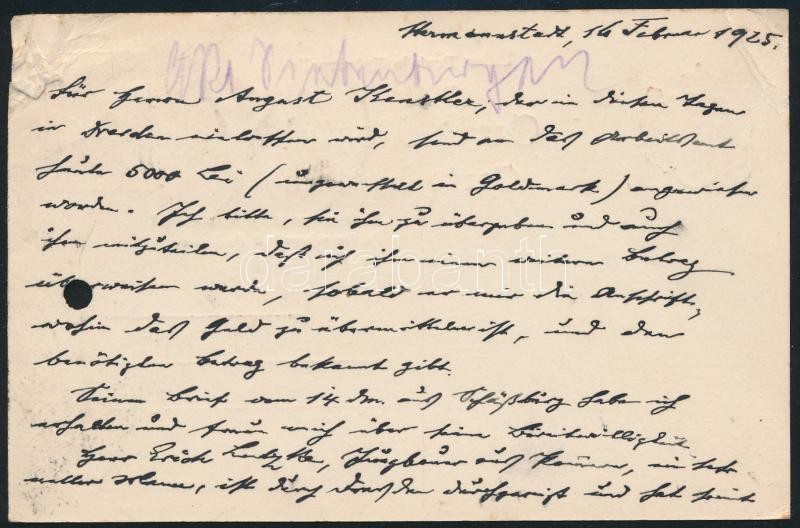 Hermannstadt, 16 Februar 1925.
Für Herrn August Kessler, der in diesen Tagen
in Dresden eintreffen wird, sind an das Arbeitsamt
heute 5000 Lei (umgewechselt in Goldmark) angewiesen
worden. Ich bitte, sie ihm zu übergeben und auch
ihm mitzuteilen, daß ich ihm einen weitern Betrag
überweisen werde, sobald er mir die Anschrift,
wohin das Geld zu übermitteln ist, und den
benötigten Betrag bekannt gibt.
darabanth
Seinen Brief vom 14. dM. aus Schäßburg habe ich
erhalten und freue mich über seine Bereitwilligkeit
Herr Erich, Jungbauer aus, ein sehr
netter, ist durch Dresden durchgereist und hat